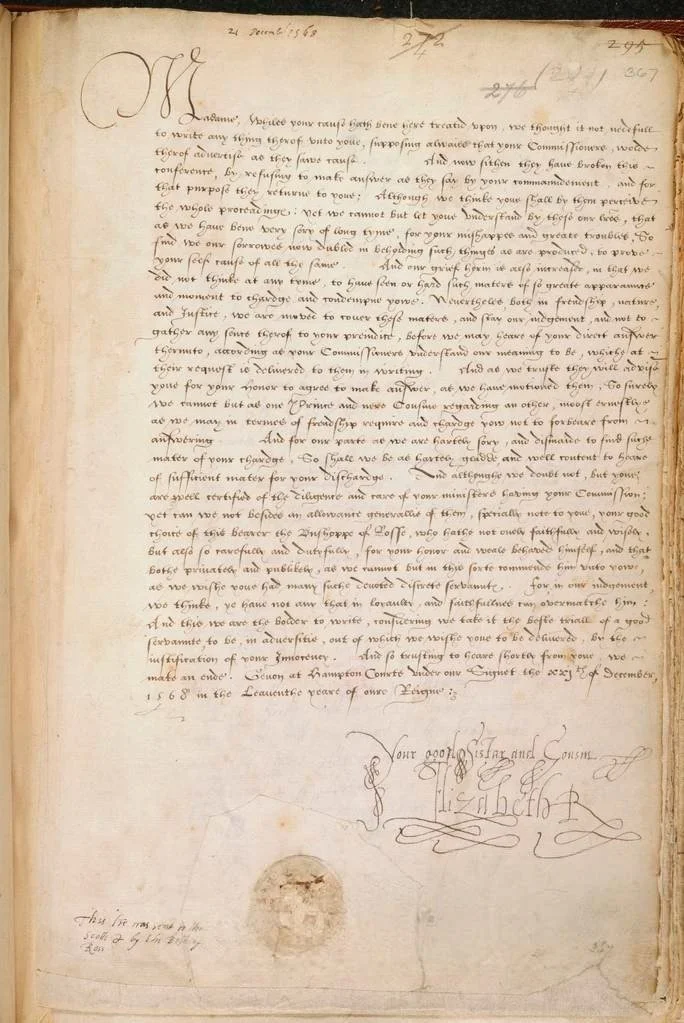 21 Decemb 1568
272
4
295
276
(277)
367
Madame, Whiles your cause hath bene here treatid vpon, we thought it not nedefull
to write any thing therof vnto youe, supposing alwaies that your Commissioners, wolde
therof advertise as they sawe cause. And now sithen they have broken this
conference, by refusing to make answer as they say by your commaundement, and for
that purpose they returne to youe; Although we thinke youe shall by them perceive
the whole proceadinge; Yet we cannot but let youe vnderstand by these our lres, that
as we have bene very sory of long tyme, for your mishappes and greate troubles, So
find we our sorrowes now dubled in beholding such thinges as are produced, to prove
your self cause of all the same. And our grief herin is also increased, in that we
did not thinke at any tyme, to have seen or hard such maters of so greate apparaunce
and moment to chardge and condempne yowe. Neverthelss both in frendship, nature,
and Iustice, we are moved to cover these maters, and stay our iudgement, and not to
gather any sence therof to your preiudice, before we may heare of your direct answer
therunto, according as your Commissioners vnderstand our meaning to be, whiche at
their request is delivered to them in writing. And as we truste they will advise
youe for your honor to agree to make answer, as we have motioned them, So surely
we cannot but as one Prince and nere Cousine regarding an other, moost ernestlye
as we may in termes of frendship require and chardge yow not to forbeare from
answering And for our parte as we are hartely sory, and dismaide to find suche
mater of your chardge, So shall we be as hartely gladde and well content to heare
of sufficient mater for your dischardge. And althoughe we doubt not, but youe
are well certified of the diligence and care of your ministers having your Commission;
yet can we not besides an allowance generallie of them, specially note to youe, your good
choice of this bearer the Bushoppe of Rosse, who hathe not onely faithfully and wisely,
but also so carefully and dutyfully, for your honor and weale behaved himself, and that
bothe privately and publikely, as we cannot but in this sorte commende him vnto yowe,
as we wishe youe had many suche devoted discrete servauntes. For in our iudgement,
we thinke, ye have not any that in loyaulty, and faithfullnes can overmatche him:
And this we are the bolder to write, considering we take it the beste triall of a good
servaunte to be, in adversitie, out of which we wishe youe to be delivered, by the
iustification of your Innocency. And so trusting to heare shortly from youe, we
make an ende. Geven at Hampton Courte vnder our Signet the xxith of december,
1568 in the Leaventhe yeare of oure Reigne:
Your good Sistar and Cousin
Elizabeth R
This lre was sent to the
Scotts Q by the Bishop
Ross
357